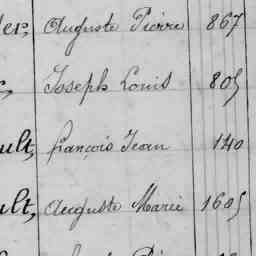 der, Auguste Pierre 867
Joseph Louis 805
ult, françois Jean 140
ult, Auguste Marie 1605